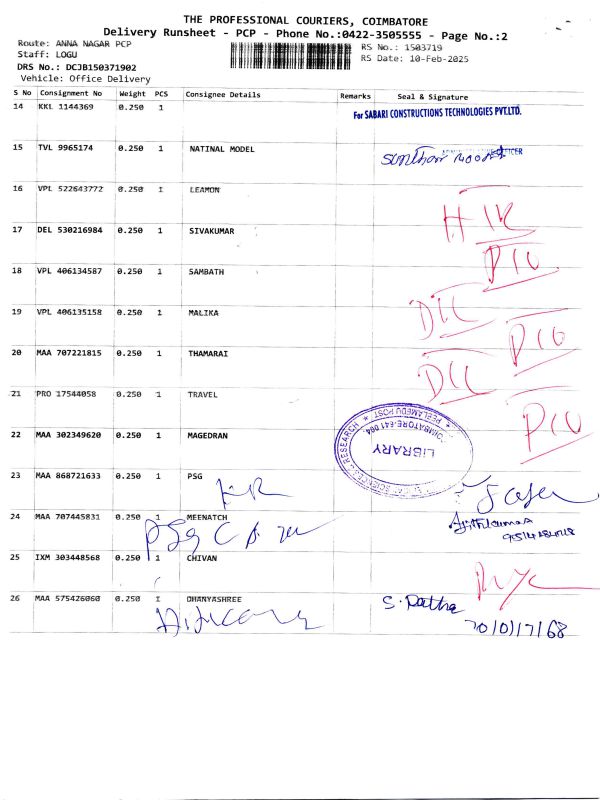 THE PROFESSIONAL COURIERS, COIMBATORE
Delivery Runsheet - PCP - Phone No.:0422-3505555 - Page No.:2
Route: ANNA NAGAR PCP
RS No.: 1503719
Staff: LOGU
RS Date: 10-Feb-2025
DRS No.: DCJB150371902
Vehicle: Office Delivery
S No Consignment No Weight PCS Consignee Details Remarks Seal & Signature
14 KKL 1144369 0.250 1
For SABARI CONSTRUCTIONS TECHNOLOGIES PVT.LTD.
15 TVL 9965174 0.250 1 NATINAL MODEL
OFFICER
16 VPL 522643772 0.250 1 LEAMON
17 DEL 530216984 0.250 1 SIVAKUMAR
18 VPL 406134587 0.250 1 SAMBATH
19 VPL 406135158 0.250 1 MALIKA
20 MAA 707221815 0.250 1 THAMARAI
21 PRO 17544058 0.250 1 TRAVEL
22 MAA 302349620 0.250 1 MAGEDRAN
PEELAMEDU POST
COIMBATORE-641 004
LIBRARY
RESEARCH
23 MAA 868721633 0.250 1 PSG
24 MAA 707445831 0.250 1 MEENATCH
25 IXM 303448568 0.250 1 CHIVAN
26 MAA 575426060 0.250 1 DHANYASHREE
S. Patha